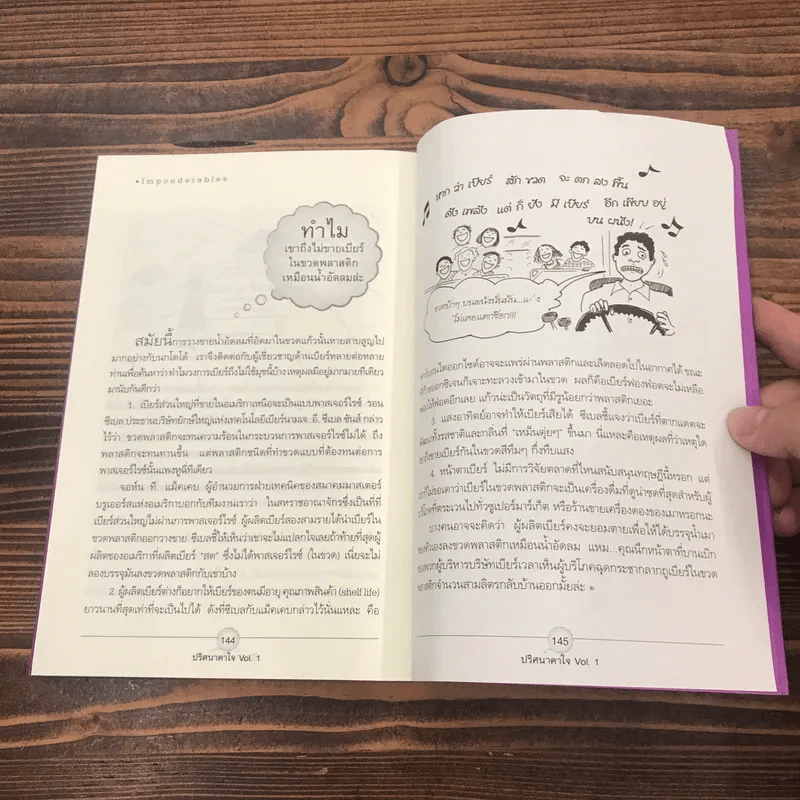 •Imponderables
ทำไม
เขาถึงไม่ขายเบียร์
ในขวดพลาสติก
เหมือนน้ำอัดลมล่ะ
สมัยนี้การวางขายน้ำอัดลมที่อัดมาในขวดแก้วนั้นหายสาบสูญไป
มากอย่างกับนกโดโด้ เราจึงติดต่อกับผู้เชี่ยวชาญด้านเบียร์หลายต่อหลาย
ท่านเพื่อค้นหาว่า ทำไมวงการเบียร์ถึงไม่ใช้มุขนี้บ้าง เหตุผลมีอยู่มากมายทีเดียว
มานับกันดีกว่า
1. เบียร์ส่วนใหญ่ที่ขายในอเมริกาเหนือจะเป็นแบบพาสเจอร์ไรซ์ รอน
ซีเบล ประธานบริษัทยักษ์ใหญ่แห่งเทคโนโลยีเบียร์นามเจ. อี. ซีเบล ซันส์ กล่าว
ไว้ว่า ขวดพลาสติกจะทนความร้อนในกระบวนการพาสเจอร์ไรซ์ไม่ได้ ถึง
พลาสติกจะทนทานขึ้น แต่พลาสติกชนิดที่ทำขวดแบบที่ต้องทนต่อการ
พาสเจอร์ไรซ์นั้นแพงหูฉี่ทีเดียว
จอห์น ที. แม็คเคบ ผู้อำนวยการฝ่ายเทคนิคของสมาคมมาสเตอร์
บรูเออร์สแห่งอเมริกาบอกกับทีมงานเราว่า ในสหราชอาณาจักรซึ่งเป็นที่ที่
เบียร์ส่วนใหญ่ไม่ผ่านการพาสเจอร์ไรซ์ ผู้ผลิตเบียร์สองสามรายได้นำเบียร์ใน
ขวดพลาสติกออกวางขาย ซีเบลชี้ให้เห็นว่าเขาจะไม่แปลกใจเลยถ้าท้ายที่สุดผู้
ผลิตของอเมริกาที่ผลิตเบียร์ "สด" ซึ่งไม่ได้พาสเจอร์ไรซ์ (ในขวด) เนี่ยจะไม่
ลองบรรจุมันลงขวดพลาสติกกับเขาบ้าง
2. ผู้ผลิตเบียร์ต่างก็อยากให้เบียร์ของตนมีอายุ คุณภาพสินค้า (shelf life)
ยาวนานที่สุดเท่าที่จะเป็นไปได้ ดังที่ซีเบลกับแม็คเคบกล่าวไว้นั่นแหละ คือ
144
ปริศนาคาใจ Vol. 1
หาก ว่า เบียร์ สัก ขวด จะ ตก ลง พื้น
ดัง เพล้ง แต่ ก็ ยัง มี เบียร์ อีก เพียบ อยู่
บน ผนัง!
ขวดบ้าๆ บนผนังนั่นมัน...
ไม่เคยแตกซักที!!!
คาร์บอนไดออกไซด์อาจจะแพร่ผ่านพลาสติกและเล็ดลอดไปในอากาศได้ ขณะ
ที่ก๊าซออกซิเจนก็เจาะทะลวงเข้ามาในขวด ผลก็คือเบียร์ฟองฟอดจะไม่เหลือ
ฟองให้ฟอดอีกเลย แก้วน่ะเป็นวัตถุที่มีรูน้อยกว่าพลาสติกเยอะ
3. แสงอาทิตย์อาจทำให้เบียร์เสียได้ ซีเบลชี้แจงว่าเบียร์ที่ตากแดดจะ
พัฒนาทั้งรสชาติและกลิ่นที่ "เหม็นตุ่ยๆ" ขึ้นมา นี่แหละคือเหตุผลที่ว่าเหตุใด
เขาถึงขายเบียร์กันในขวดสีทึมๆ กึ่งทึบแสง
4. หน้าตาเบียร์ ไม่มีการวิจัยตลาดที่ไหนสนับสนุนทฤษฎีนี้หรอก แต่
เราก็ไม่ขอเดาว่าเบียร์ในขวดพลาสติกจะเป็นเครื่องดื่มที่ดูน่าซดที่สุดสำหรับผู้
บริโภคที่ตระเวนไปทั่วซูเปอร์มาร์เก็ต หรือร้านขายเครื่องดองของเมาหรอกนะ
บางคนอาจจะคิดว่า ผู้ผลิตเบียร์คงจะยอมตายเพื่อให้ได้บรรจุน้ำเมา
ของตัวเองลงขวดพลาสติกเหมือนน้ำอัดลม แหม...คุณนึกหน้าตาที่บานเบิก
ของพวกผู้บริหารบริษัทเบียร์เวลาเห็นผู้บริโภคฉุดกระชากลากถูเบียร์ในขวด
พลาสติกจำนวนสามลิตรกลับบ้านออกมั้ยล่ะ
145
ปริศนาคาใจ Vol. 1